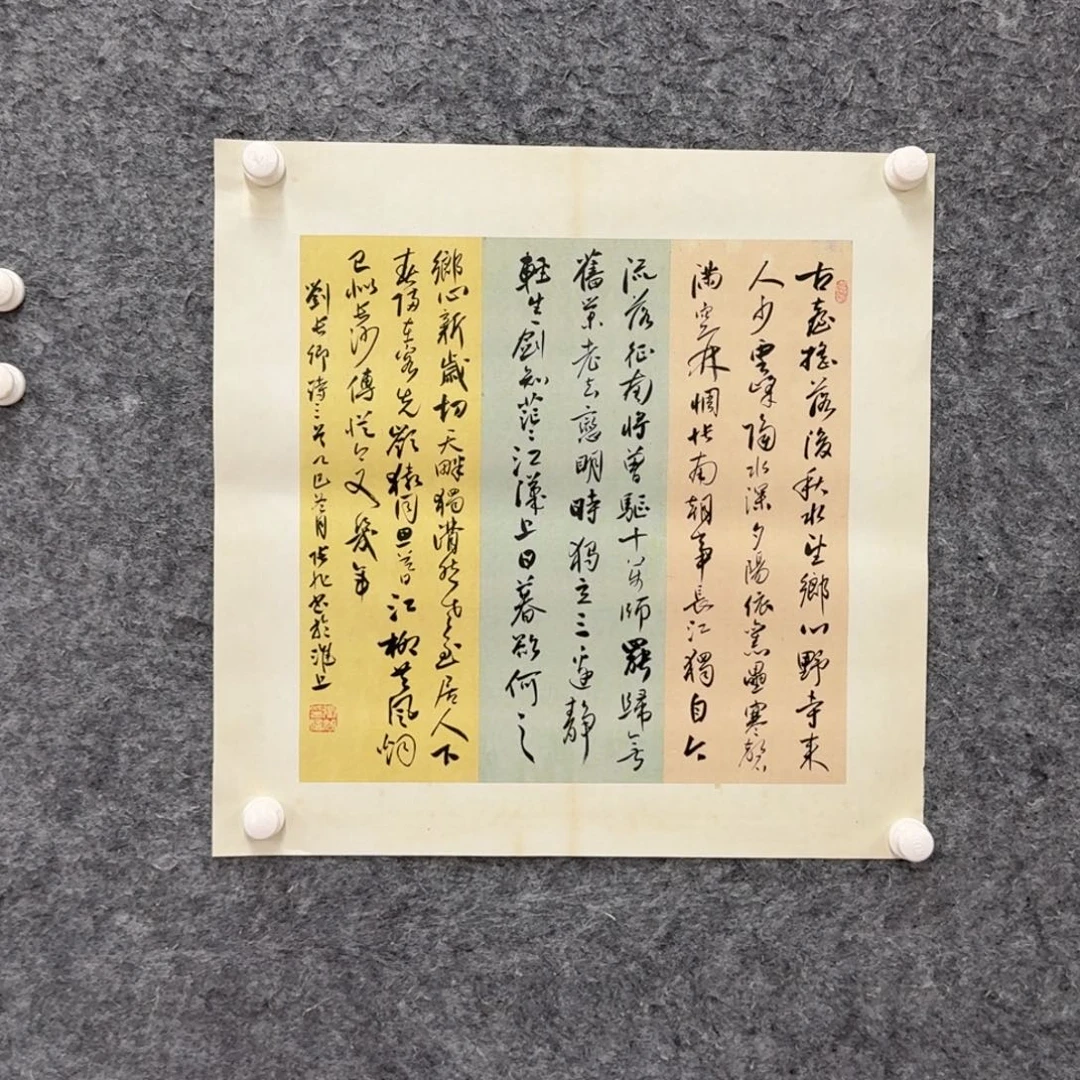 古臺搖落後秋水望鄉心野寺來
人少雲峰隔水深夕陽依舊壘寒磬
滿空林惆悵南朝事長江獨自今
流落征南將曾驅十萬師罷歸無
舊業老去戀明時獨立三邊靜
輕生一劍知茫〻江漢上日暮欲何之
鄉心新歲切天畔獨潸然老至居人下
春歸在客先嶺猿同旦暮江柳共風烟
已似長沙傅從今又幾年
劉長卿詩三首 巳 月 書於滬上